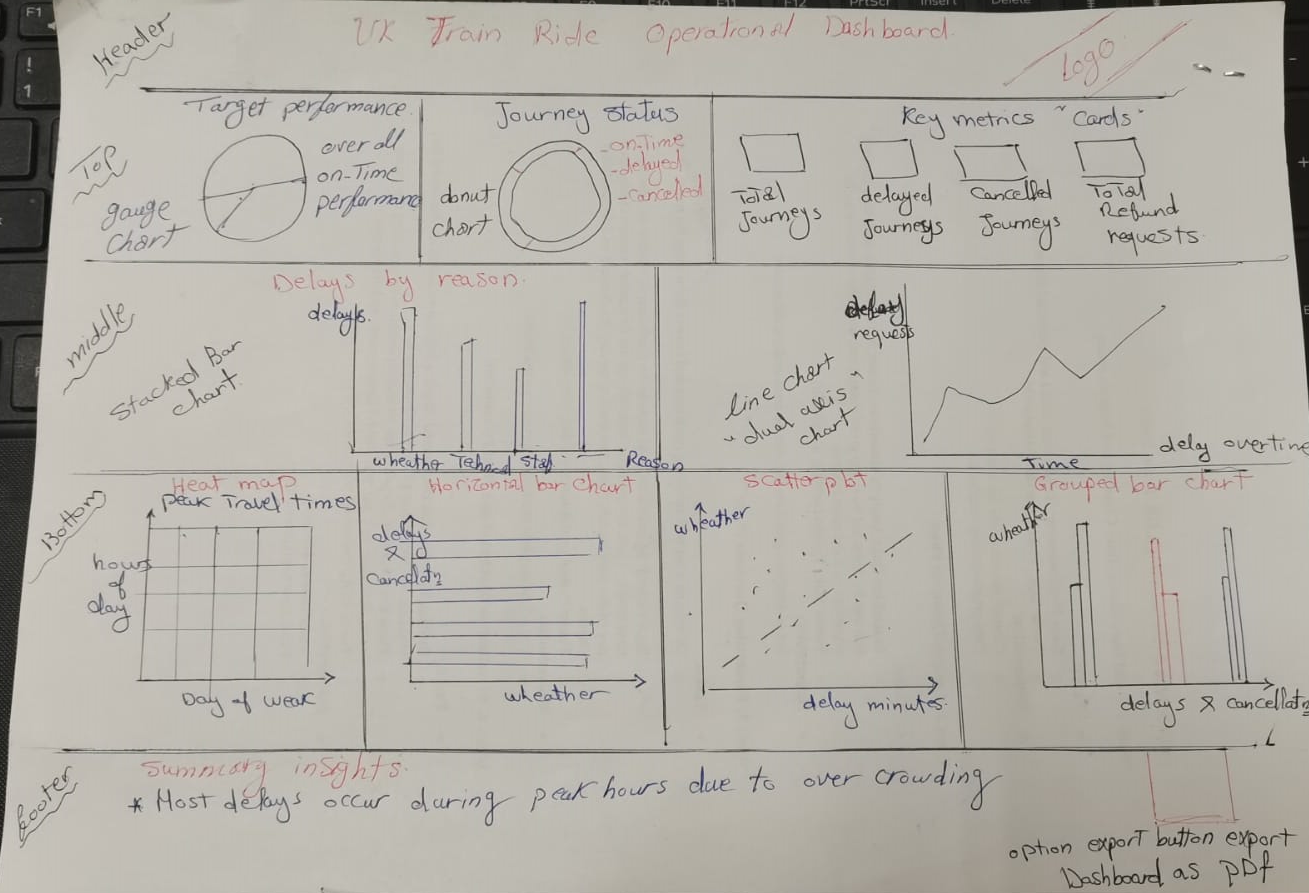 Header
UK Train Ride Operational Dashboard.
Logo
Top
Target performance.
over all
on-Time
performanc
gauge
Chart
Journey status
-on-Time
-delayed
-Cancelled
donut
chart
Key metrics "Cards"
ToTal
Journeys
delayed
Journeys
Cancelled
Journeys
ToTal
Refund
requests.
middle
Delays by reason.
delays.
Stacked Bar
chart.
wheather
Reason
requests
line chart
"dual axis"
chart
Time
delay overtime
Bottom
Heat map
Peak Travel Times
hours
of
day
Day of weak
Horizontal bar Chart
delays
&
Cancelatn
wheather
Scatter plot
wheather
delay minutes.
Grouped bar chart
wheather
delays & cancellatn
footer
Summary insights.
* Most delays occur during peak hours due to over crowding
option export button export
Dashboard as PDf